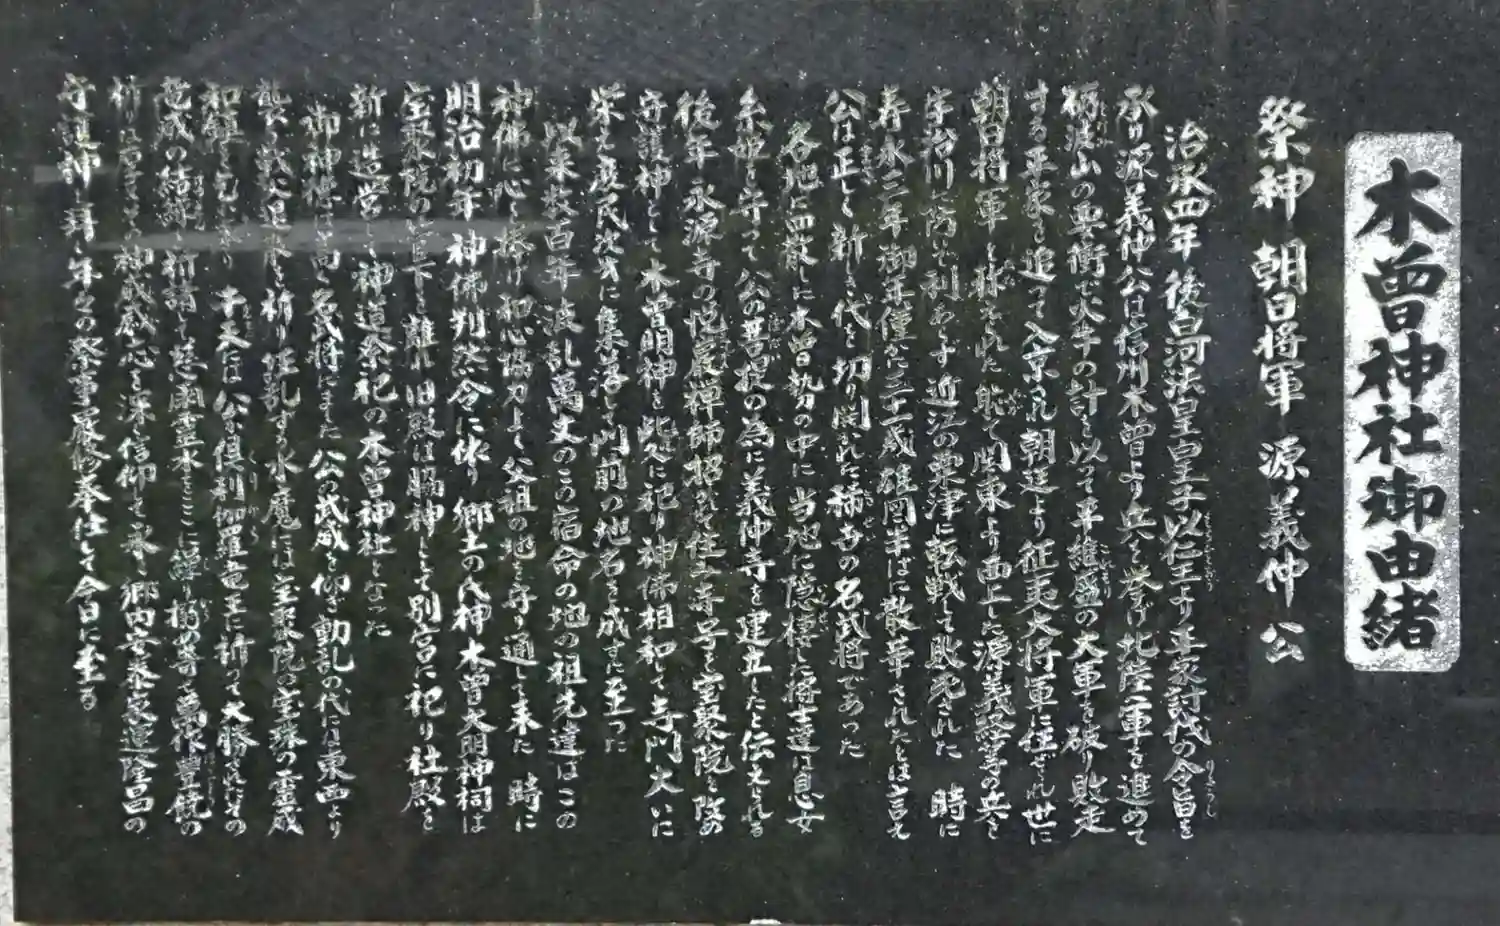 木曽神社御由緒
祭神 朝日将軍 源義仲公
治承四年後白河法皇皇子以仁王より平家討伐の令旨を
承り源義仲公は信州木曽より兵を挙げ北陸軍を進めて
砺波山の要衝で火牛の計を以って平維盛の大軍を破り敗走
する平家を追って入京され朝廷より征夷大将軍に任ぜられ世に
朝日将軍と称えられた 関東より西上した源義経等の兵を
宇治川に防いで利あらず近江の粟津に転戦して敗死された 時に
寿永三年御年僅かに三十一歳雄図半ばに散華されたとは言え
公は正しく新しき代を切り開かれた稀古の名武将であった
各地に四散した木曽勢の中に当地に隠棲した将士達は息女
を守って公の菩提の為に義仲寺を建立したと伝えられる
後年永源寺の悦巌禅師招かれて住し寺号を宝泉院と改め
守護神として木曽明神を此処に祀り神佛相和して寺門大いに
栄え庶民次第に集落して門前の地名を成すに至った
以来数百年波乱萬丈のこの宿命の地の祖先達はこの
神佛に心を捧げ和心協力よく父祖の地を守り通して来た 時に
明治初年神佛判然令に依り郷土の氏神木曽大明神祠は
宝泉院の管下を離れ旧殿は脇神として別宮に祀り社殿を
新に造営して神道祭祀の木曽神社となった
御神徳は 名武将にまた公の武威を仰ぎ動乱の代には東西より
襲う戦火退散を祈り狂乱する水魔には宝泉院の宝珠の霊感
和 干天には公が倶利伽羅竜王に祈って大勝されたその
竜威の結 を祈請して慈雨霊水をここに 萬作豊饒の
祈り 神威感応を深く信仰して永く郷内安泰家運隆昌の
守護神と拝し年々の祭事厳修奉仕して今日に至る